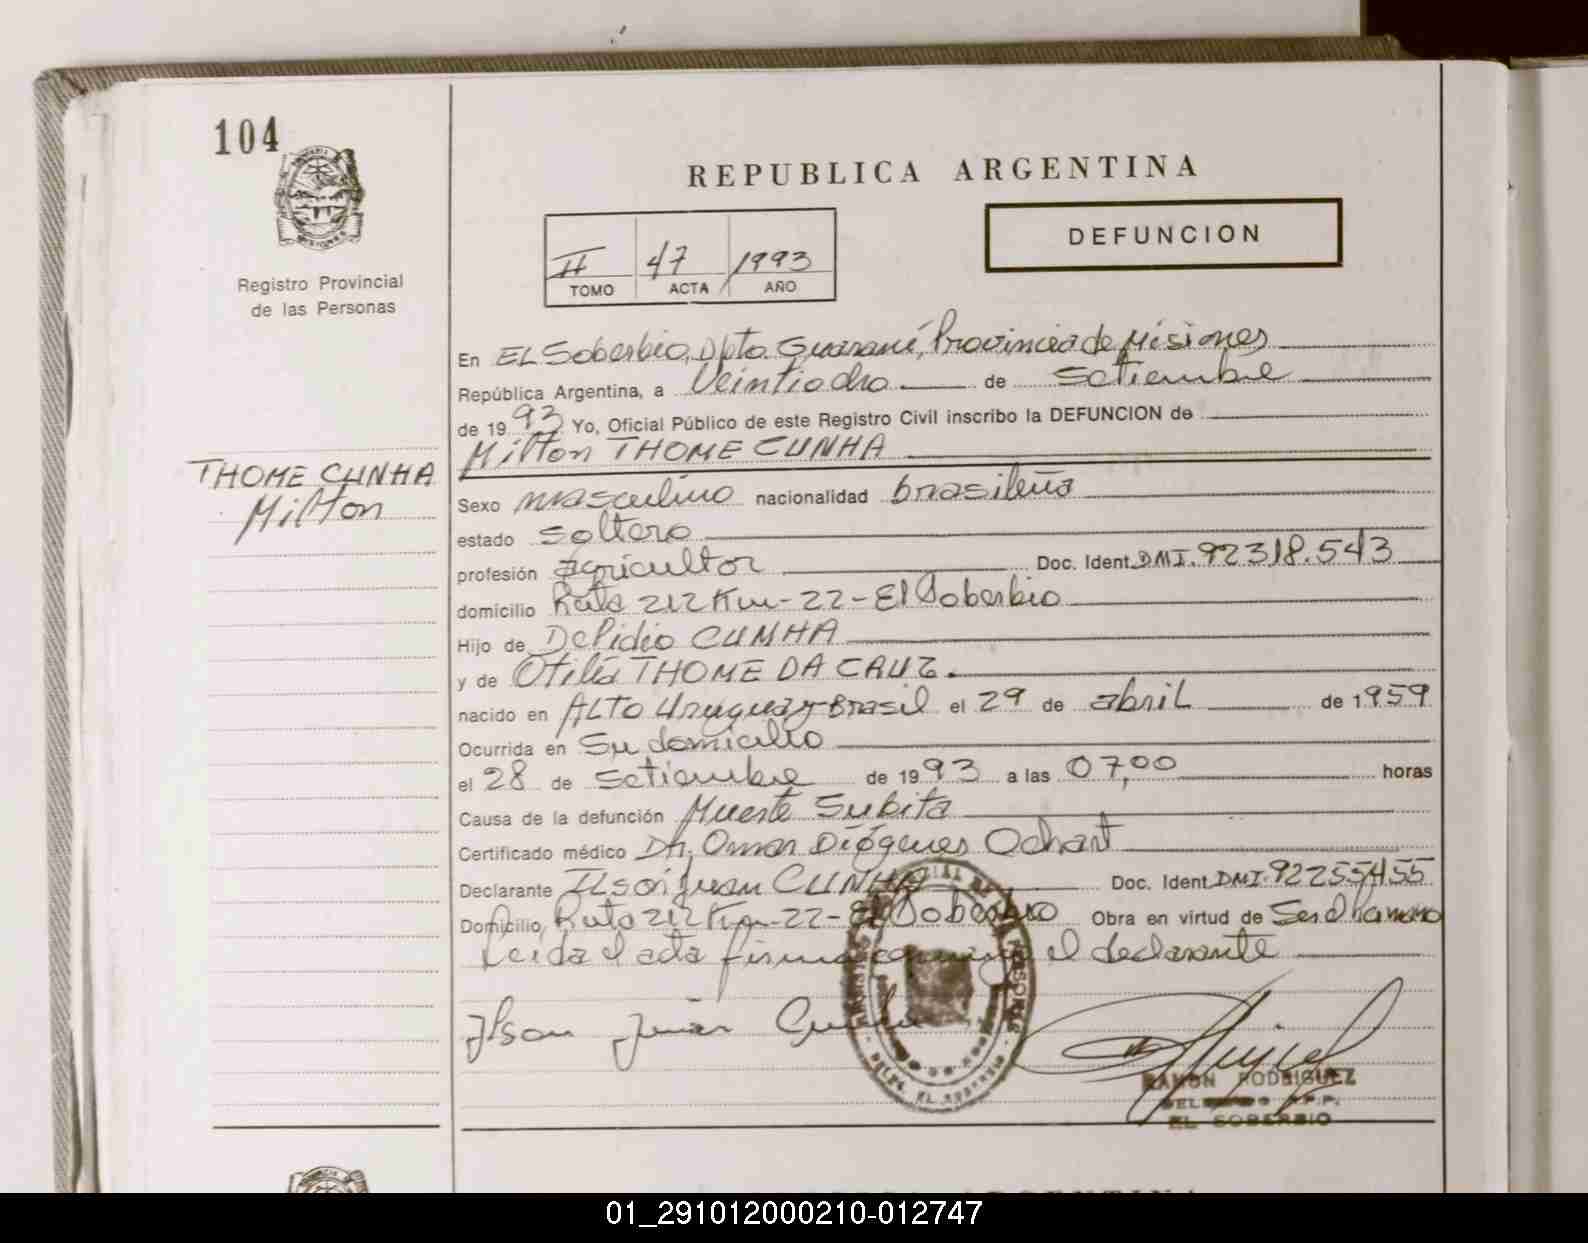 104
REPUBLICA ARGENTINA
DEFUNCION
II 47 1993
TOMO ACTA AÑO
Registro Provincial
de las Personas
En EL Soberbio, Dpto. Guaraní, Provincia de Misiones
República Argentina, a Veintiocho de Setiembre
de 1993 Yo, Oficial Público de este Registro Civil inscribo la DEFUNCION de
Milton THOME CUNHA
THOME CUNHA
Milton
Sexo masculino nacionalidad brasileña
estado soltero
profesión agricultor Doc. Ident. DMI. 92318.543
domicilio Ruta 212 Km-22-El Soberbio
Hijo de Delpidio CUNHA
y de Otilia THOME DA CRUZ.
nacido en ALTO Uruguay-Brasil el 29 de abril de 1959
Ocurrida en Su domicilio
el 28 de setiembre de 1993 a las 07,00 horas
Causa de la defunción Muerte Subita
Certificado médico Dr. Omar Diógenes Ochart
Declarante Juan CUNHA Doc. Ident. DMI. 92255455
Domicilio, Ruta 212 Km-22-El Soberbio Obra en virtud de Ser
Leida el acta firma conmigo el declarante
RAMON RODRIGUEZ
EL SOBERBIO
01_291012000210-012747